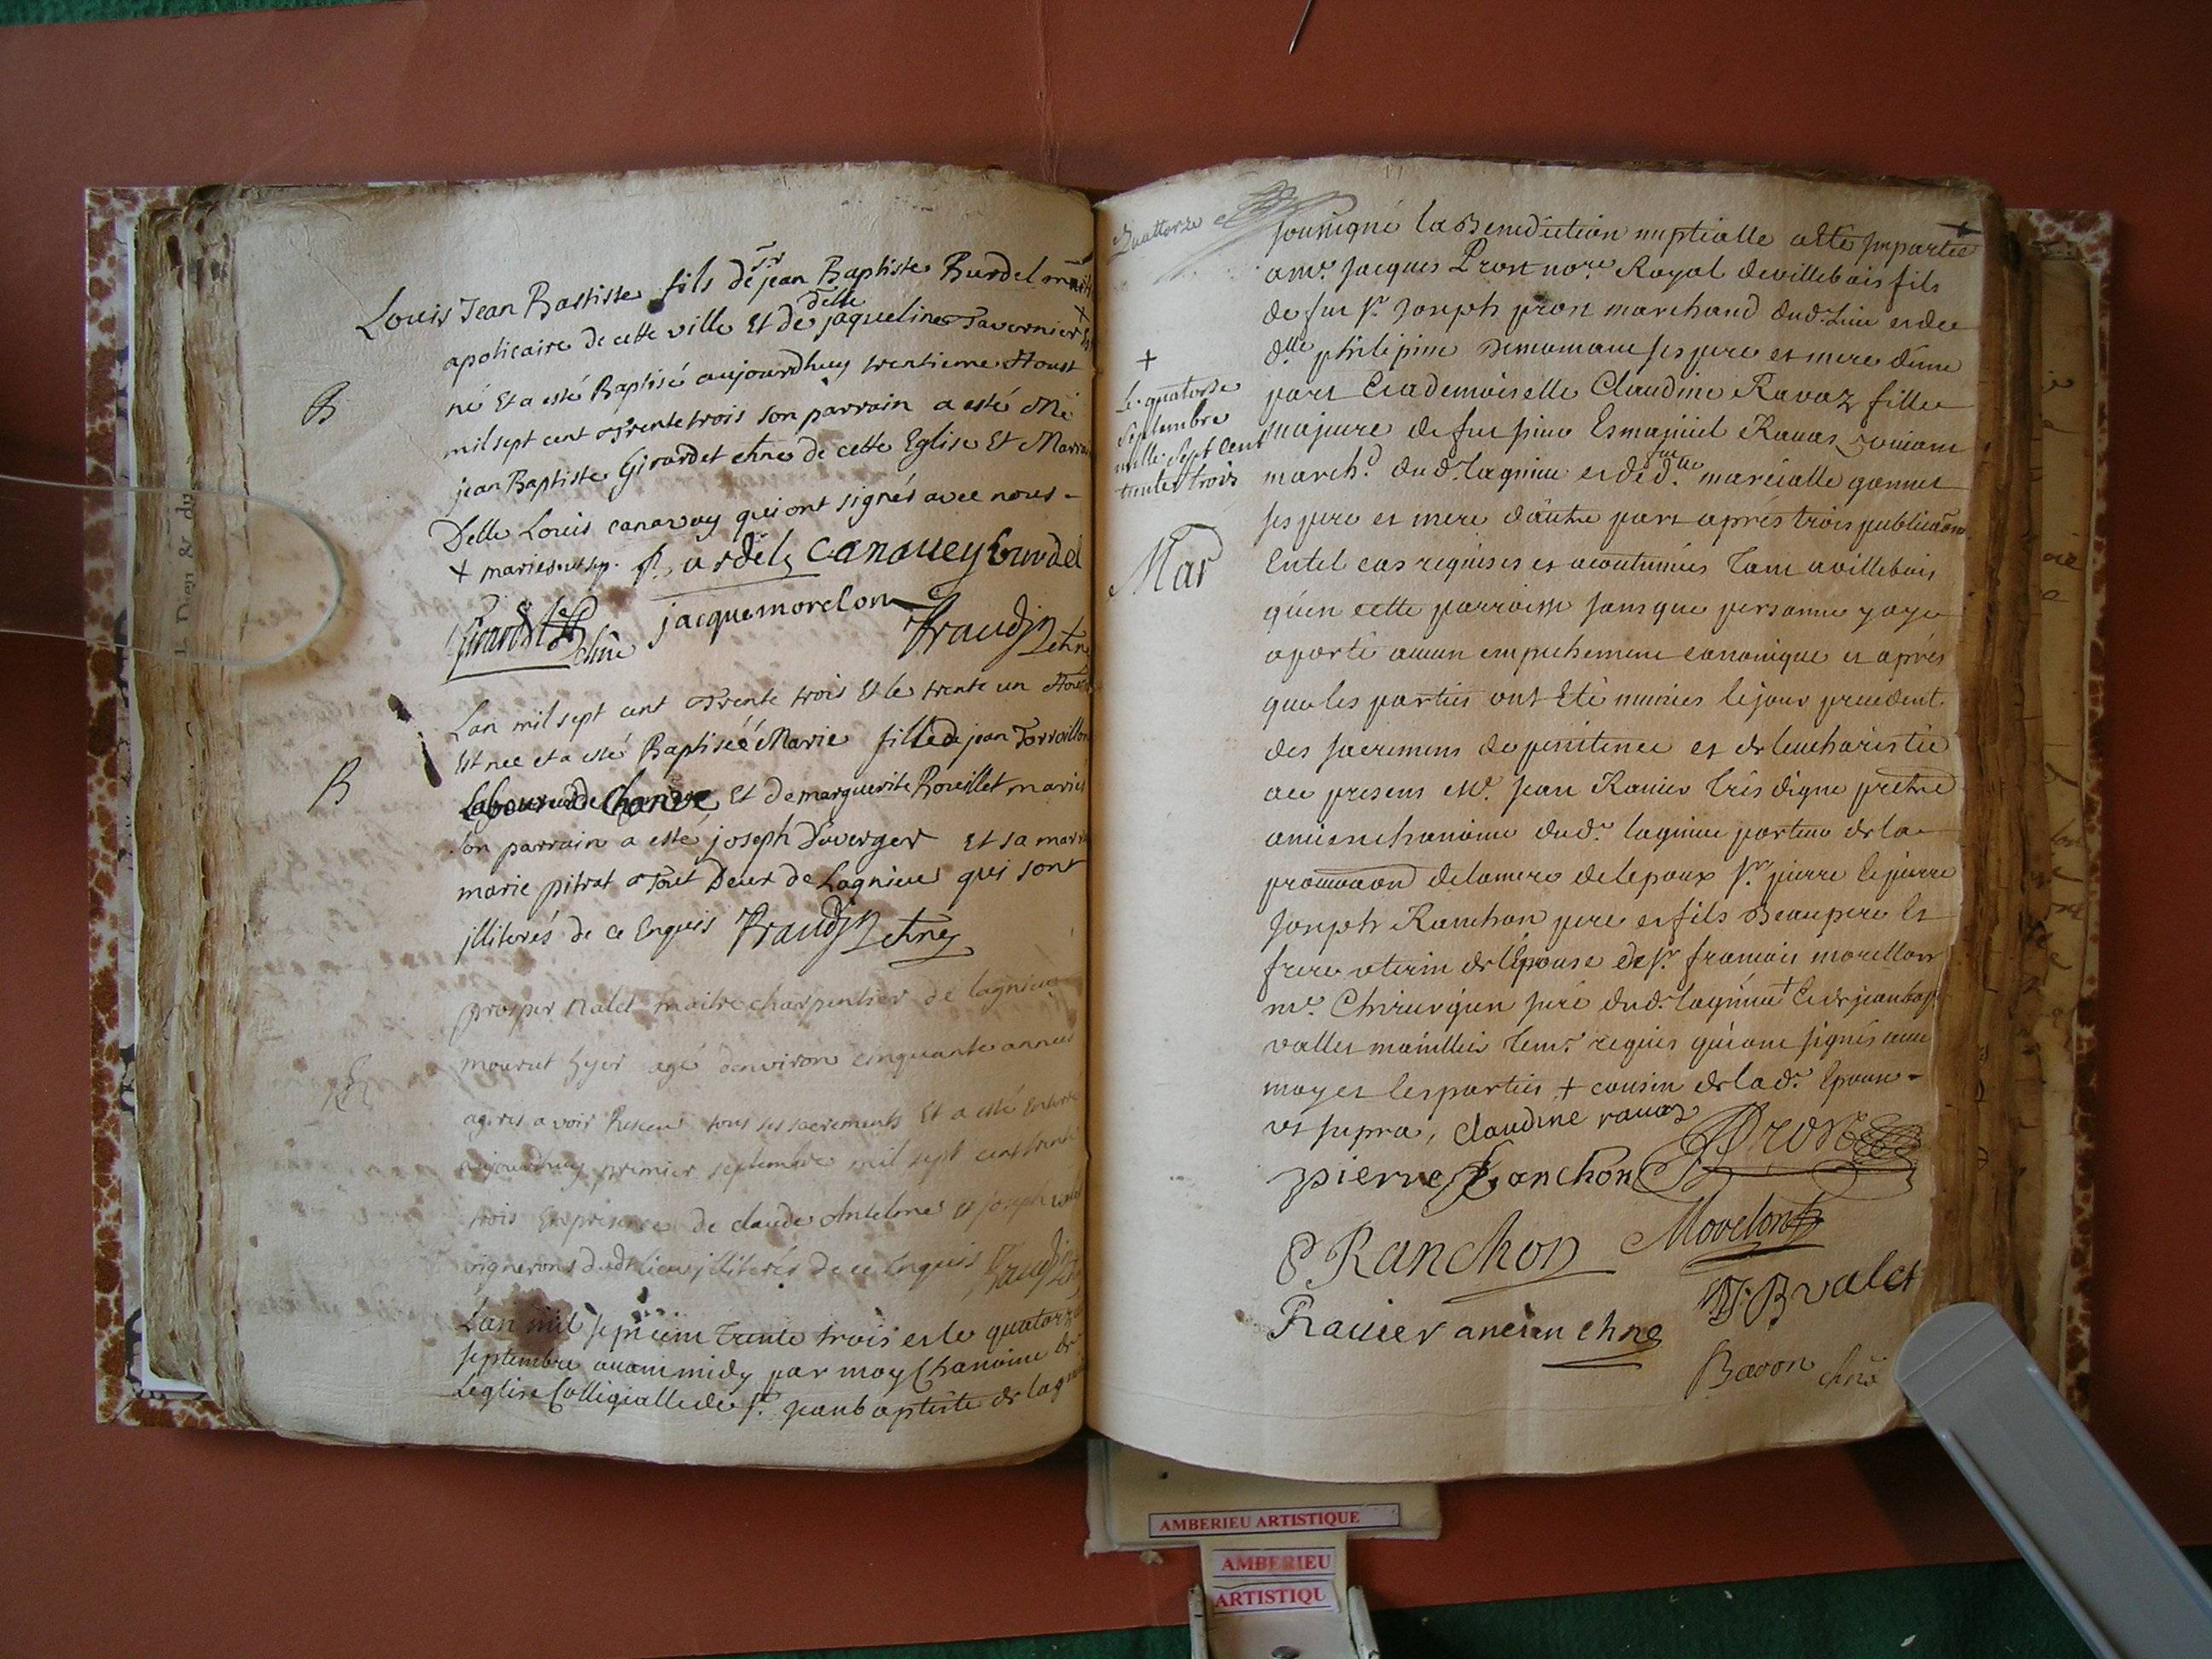 Louis Jean Bastiste fils de sr jean Baptiste Burdel me
apoticaire de cette ville Et de Delle jaqueline Tavernier +
né Et a esté Baptisé aujourdhuy trentieme Aoust
B
mil sept cent Trente trois son parrain a esté Mre
jean Baptiste Girardet chne de cette Eglise Et Marra
Delle Louis canavay qui ont signés avec nous -
+ mariés ut sup. Burdel canauey burdel
Girardet chne jacquemorelon Fraudin chne
Lan mil sept cent Trente trois Et le trente un Aoust
Est nee et a esté Baptiseé Marie fille de jean Torroillon
B
Laboureur de Et de marguerite Rouillet mariés
son parrain a esté joseph Duverger Et sa marr
marie pitrat Tout Deux de Lagnieu qui sont
jlliterés de ce Enquis Fraudin chne
prosper Nalet maitre charpentier de lagnieu
mourut hyer agé denviron cinquante années
apres avoir Receu tous ses sacrements Et a esté Enterré
aujourdhuy premier septembre mil sept cent trente
trois En presence de claude Antelme Et joseph
vignerons dudt lieu jlliterés de ce Enquis Fraudin
Lan mil sept cent Trente trois et le quatorze
septembre auant midy par moy Chanoine de
Leglise Collegialle de St jean baptiste de lagnieu
Quattorze
sousigné la Benediction nuptialle a été impartie
a mre Jacques Prost nore Royal de villebois fils
de feu sr Joseph prost marchand dudt Lieu et de
dlle philipine ses pere et mere d'une
+
Le quatorse
septembre
mille sept cent
trente trois
part Et ademoiselle Claudine Ravaz fille
majeure de feu sieur Esmaniüel Rauaz viuant
marchd dudt lagnieu et de feue dlle marcialle gonnet
ses pere et mere d'autre part aprés trois publicaons
Mar
En tel cas requises et acoutumées Tant a villebois
qu'en cette parroisse sans que personne y aye
aporté aucun empechement canonique et aprés
que les parties ont Eté munies le jour precedent
des sacremens de penitence et de leucharistie
ace presens Mre jean Rauier Trés digne prétre
ancien chanoine dudt lagnieu porteur de la
procuraon de la mere de lepoux sr pierre Et pierre
Joseph Ranchon pere et fils Beaupere Et
frere uterin de lEpouse de sr francois morellon
me Chirurgien juré dudt lagnieu + Et de jean bap
vallet témt requis qui ont signés auec
moy et les parties + cousin de la dt Epouse -
ut supra, claudine rauaz Prost
pierre Ranchon
P Ranchon Morelon
JB valet
Rauier ancien chne
Bavon chne
AMBERIEU ARTISTIQUE
AMBERIEU
ARTISTIQU